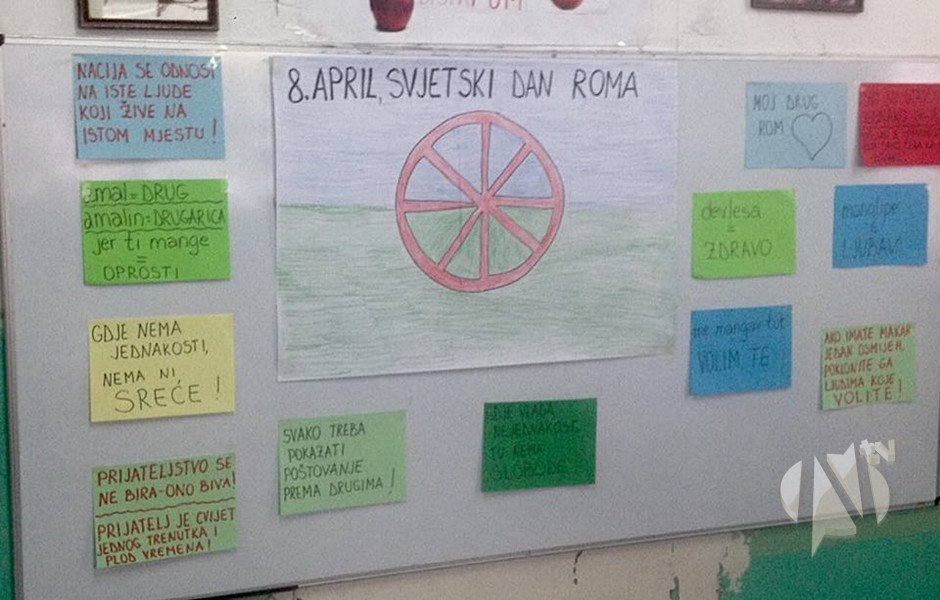 8.APRIL, SVJETSKI DAN ROMA
NACIJA SE ODNOSI
NA ISTE LJUDE
KOJI ŽIVE NA
ISTOM MJESTU!
amal=DRUG
amalin=DRUGARICA
jer ti mange
=
OPROSTI
GDJE NEMA
JEDNAKOSTI,
NEMA NI
SREĆE!
PRIJATELJSTVO SE
NE BIRA-ONO BIVA!
PRIJATELJ JE CVIJET
JEDNOG TRENUTKA I
PLOD VREMENA!
SVAKO TREBA
POKAZATI
POŠTOVANJE
PREMA DRUGIMA!
GDJE VLADA
NEJEDNAKOST,
TU NEMA
SLOBODE
MOJ DRUG
ROM
devlesa
=
ZDRAVO
manglipe
=
LJUBAV
me mangav tut
VOLIM TE
AKO IMATE MAKAR
JEDAN OSMIJEH,
POKLONITE GA
LJUDIMA KOJE
VOLITE!
tv